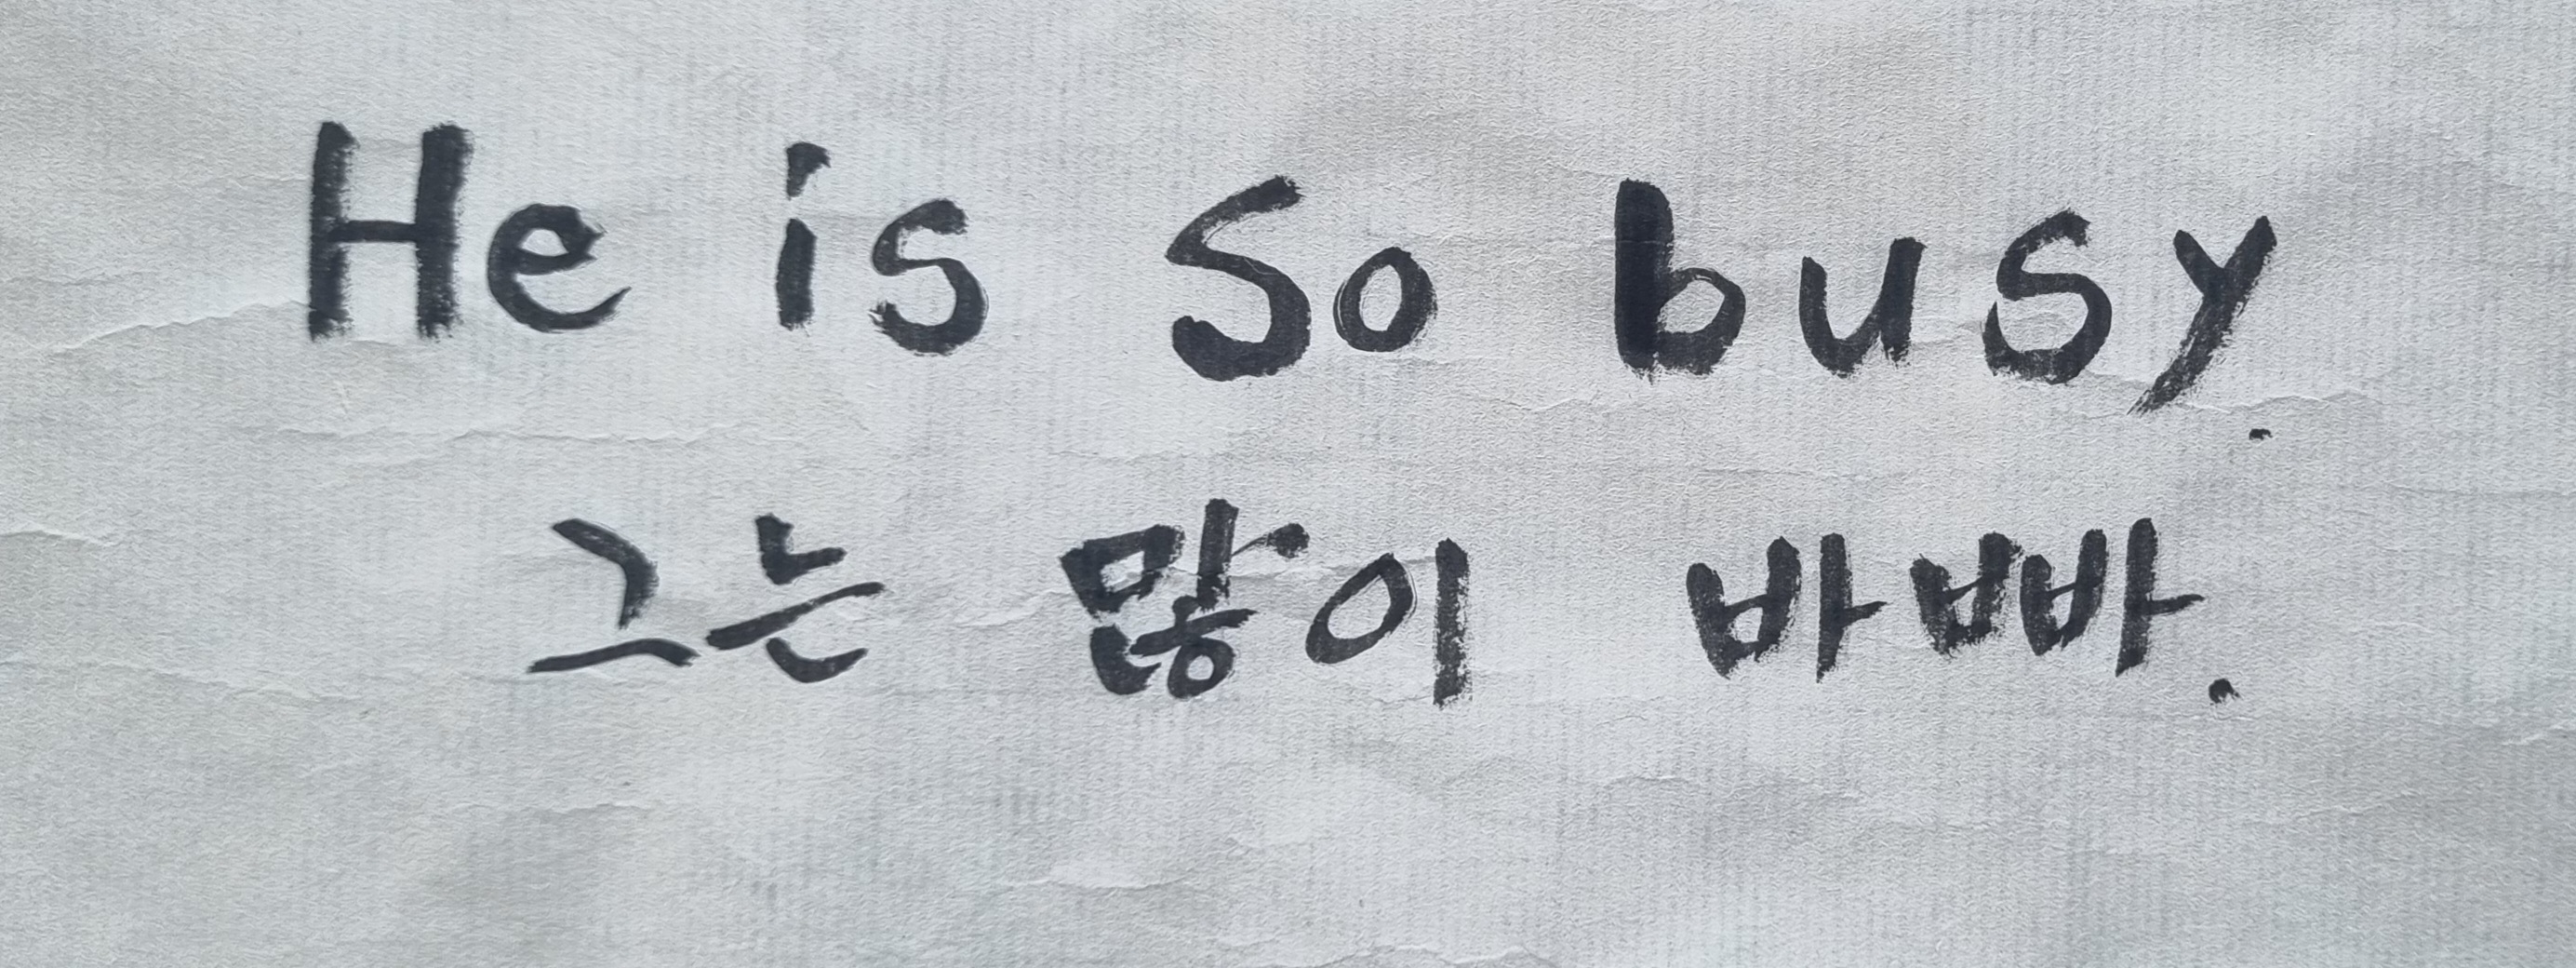 He is So busy.
그는 많이 바빠.